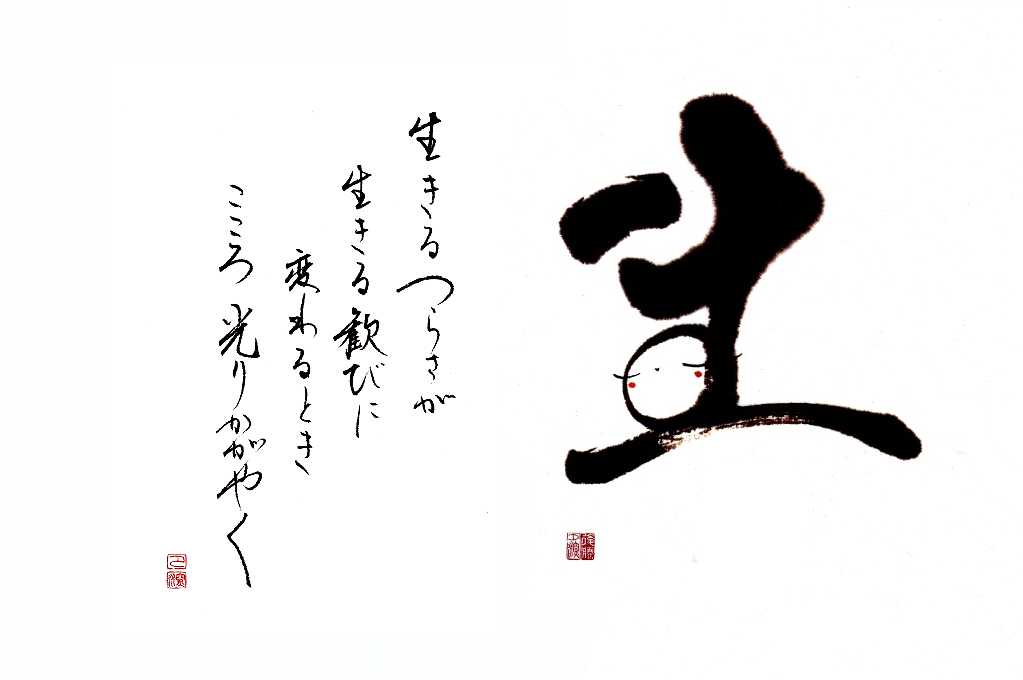 生
生きるつらさが
生きる歓びに
変わるとき
こころ光りかがやく